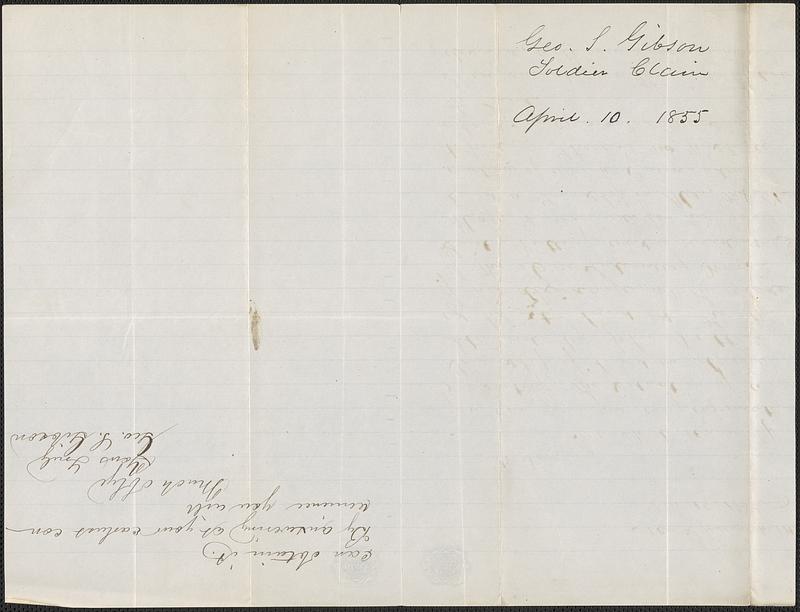 Geo. S. Gibson
Soldier Claim
April. 10. 1855
can obtain it.
By answering at your earliest con-
venience you will
Much oblige
Yours Truly
Geo. S. Gibson